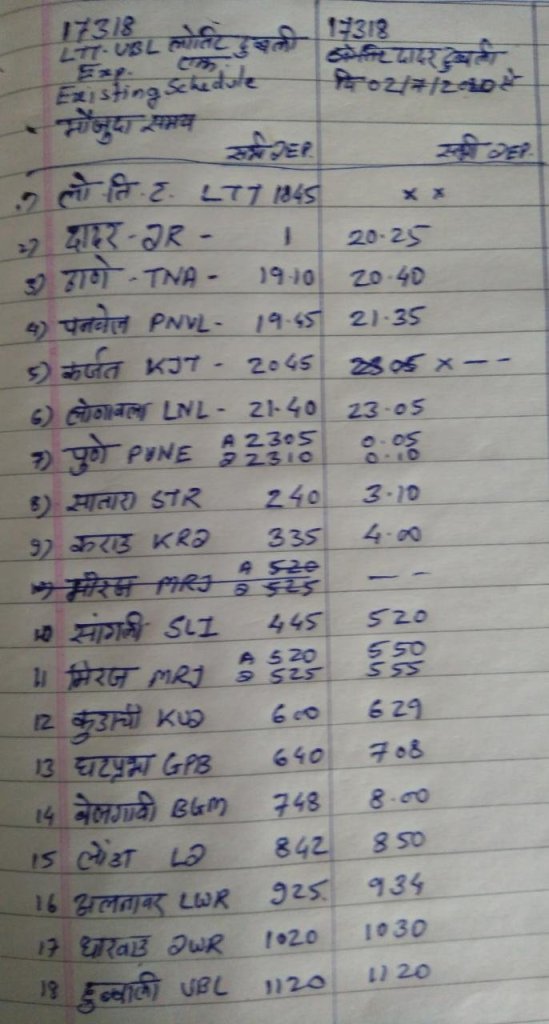 17318 17318
LTT-UBL लोतिट हुबली दादर हुबली
Exp. एक्स. दि 02/7/2020 से
Existing Schedule
मौजुदा समय
सभी DEP. सभी DEP.
1) लो. ति. ट. LTT 1845 x x
2) दादर - DR - 1 20.25
3) ठाणे - TNA - 19.10 20.40
4) पनवेल PNVL - 19.45 21.35
5) कर्जत KJT - 2045 2305 x - -
6) लोणावला LNL - 21.40 23.05
7) पुणे PUNE A 2305 0.05
D 2310 0.10
8) सातारा STR 240 3.10
9) कराड KRD 335 4.00
10) मीरज MRJ A 520 D 525 - -
10 सांगली SLI 445 520
11 मिरज MRJ A 520 550
D 525 555
12 कुडाची KUD 600 629
13 घटप्रभा GPB 640 708
14 बेलगावी BGM 748 8.00
15 लोंडा LD 842 850
16 अलनावर LWR 925 934
17 धारवाड DWR 1020 1030
18 हुब्बाली UBL 1120 1120